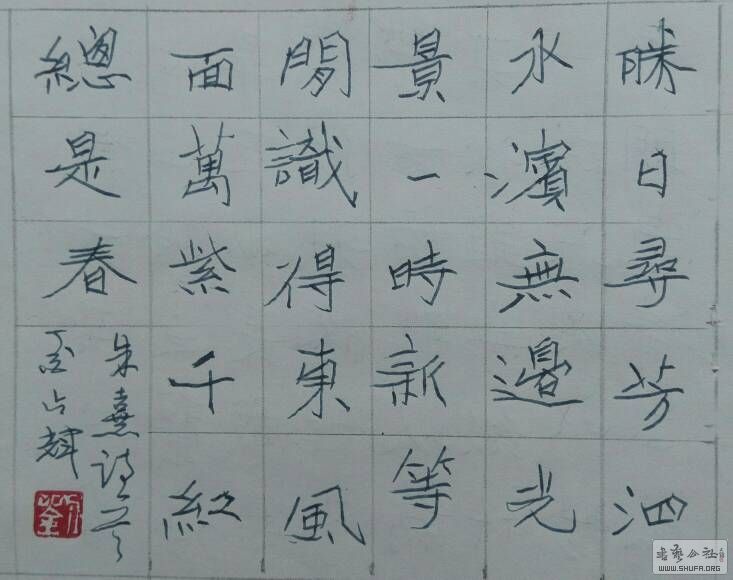 勝日尋芳泗
水濱無邊光
景一時新等
閒識得東風
面萬紫千紅
總是春
朱熹詩一首
占斌
劉
书艺公社
WWW.SHUFA.ORG